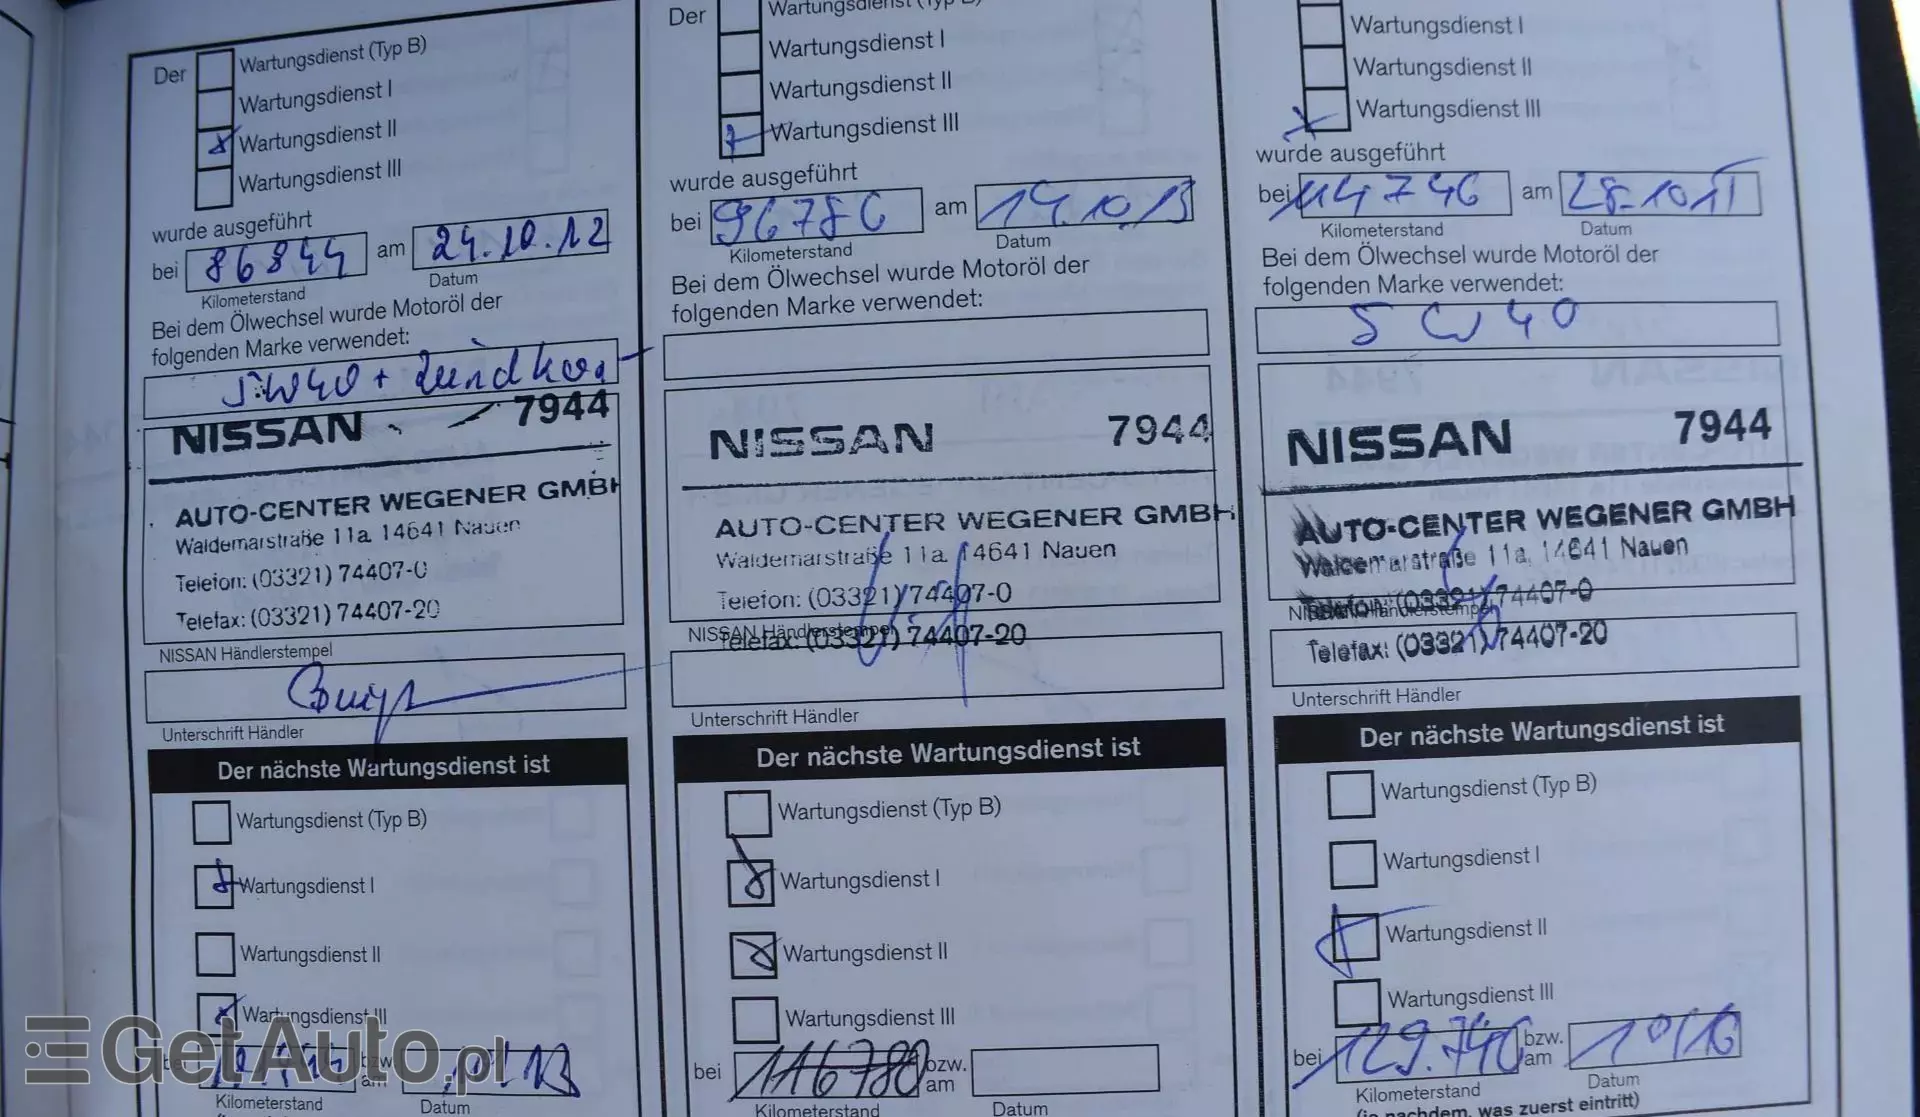 Der
Wartungsdienst (Typ B)
Wartungsdienst I
Wartungsdienst II
Wartungsdienst III
wurde ausgeführt
bei 86844 am 24.10.12
Kilometerstand Datum
Bei dem Ölwechsel wurde Motoröl der
folgenden Marke verwendet:
5W40 +
NISSAN 7944
AUTO-CENTER WEGENER GMBH
Waldemarstraße 11a 14641 Nauen
Telefon: (03321) 74407-0
Telefax: (03321) 74407-20
NISSAN Händlerstempel
Unterschrift Händler
Der nächste Wartungsdienst ist
Wartungsdienst (Typ B)
Wartungsdienst I
Wartungsdienst II
Wartungsdienst III
bei bzw. am
Kilometerstand Datum
Der
Wartungsdienst (Typ B)
Wartungsdienst I
Wartungsdienst II
Wartungsdienst III
wurde ausgeführt
bei 96780 am 14.10.13
Kilometerstand Datum
Bei dem Ölwechsel wurde Motoröl der
folgenden Marke verwendet:
NISSAN 7944
AUTO-CENTER WEGENER GMBH
Waldemarstraße 11a 14641 Nauen
Telefon: (03321) 74407-0
NISSAN Händlerstempel
Telefax: (03321) 74407-20
Unterschrift Händler
Der nächste Wartungsdienst ist
Wartungsdienst (Typ B)
Wartungsdienst I
Wartungsdienst II
Wartungsdienst III
bei 116780 bzw. am
Kilometerstand Datum
Wartungsdienst I
Wartungsdienst II
Wartungsdienst III
wurde ausgeführt
bei 114746 am
Kilometerstand Datum
Bei dem Ölwechsel wurde Motoröl der
folgenden Marke verwendet:
5W40
NISSAN 7944
AUTO-CENTER WEGENER GMBH
Waldemarstraße 11a 14641 Nauen
Telefon: (03321) 74407-0
NISSAN Händlerstempel
Telefax: (03321) 74407-20
Unterschrift Händler
Der nächste Wartungsdienst ist
Wartungsdienst (Typ B)
Wartungsdienst I
Wartungsdienst II
Wartungsdienst III
bei 129.746 bzw. am 10/16
Kilometerstand Datum
(je nachdem, was zuerst eintritt)
GetAuto.pl